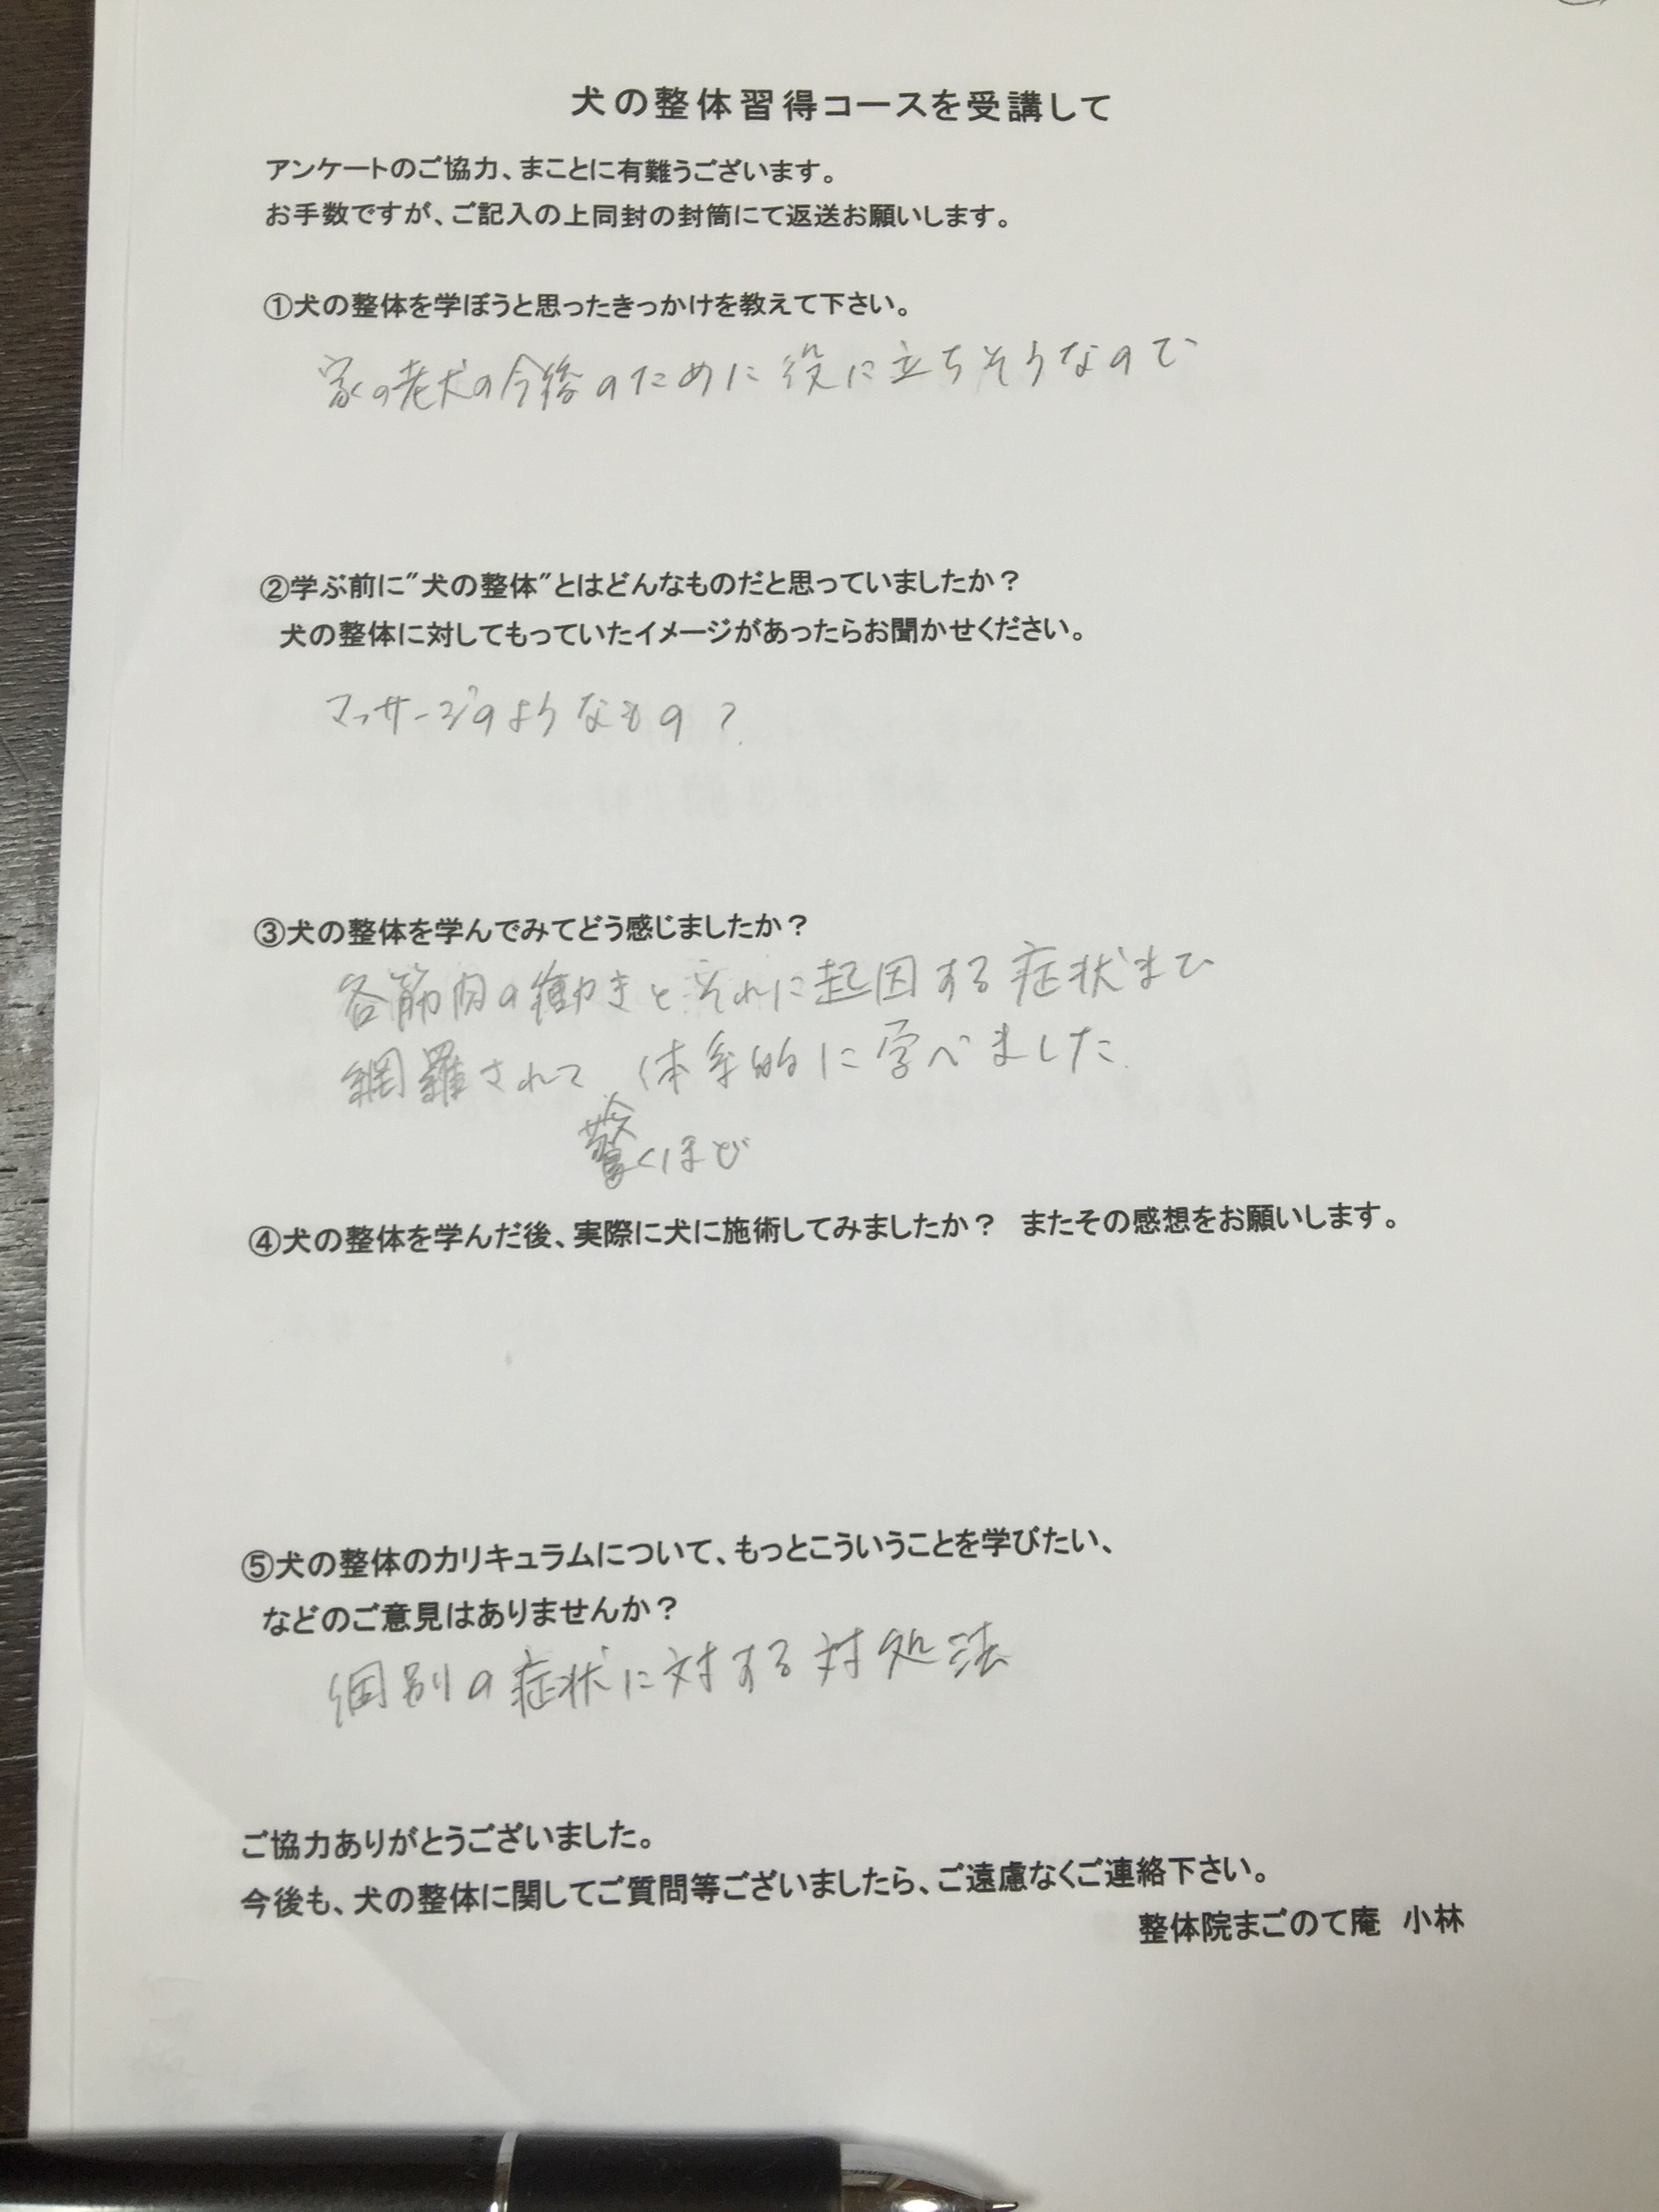 犬の整体習得コースを受講して
アンケートのご協力、まことに有難うございます。
お手数ですが、ご記入の上同封の封筒にて返送お願いします。
①犬の整体を学ぼうと思ったきっかけを教えて下さい。
家の老犬の今後のために役に立ちそうなので
②学ぶ前に"犬の整体"とはどんなものだと思っていましたか？
犬の整体に対してもっていたイメージがあったらお聞かせください。
マッサージのようなもの？
③犬の整体を学んでみてどう感じましたか？
各筋肉の働きとそれに起因する症状まで
網羅されて体系的に学べました
驚くほど
④犬の整体を学んだ後、実際に犬に施術してみましたか？ またその感想をお願いします。
⑤犬の整体のカリキュラムについて、もっとこういうことを学びたい、
などのご意見はありませんか？
個別の症状に対する対処法
ご協力ありがとうございました。
今後も、犬の整体に関してご質問等ございましたら、ご遠慮なくご連絡下さい。
整体院まごのて庵 小林